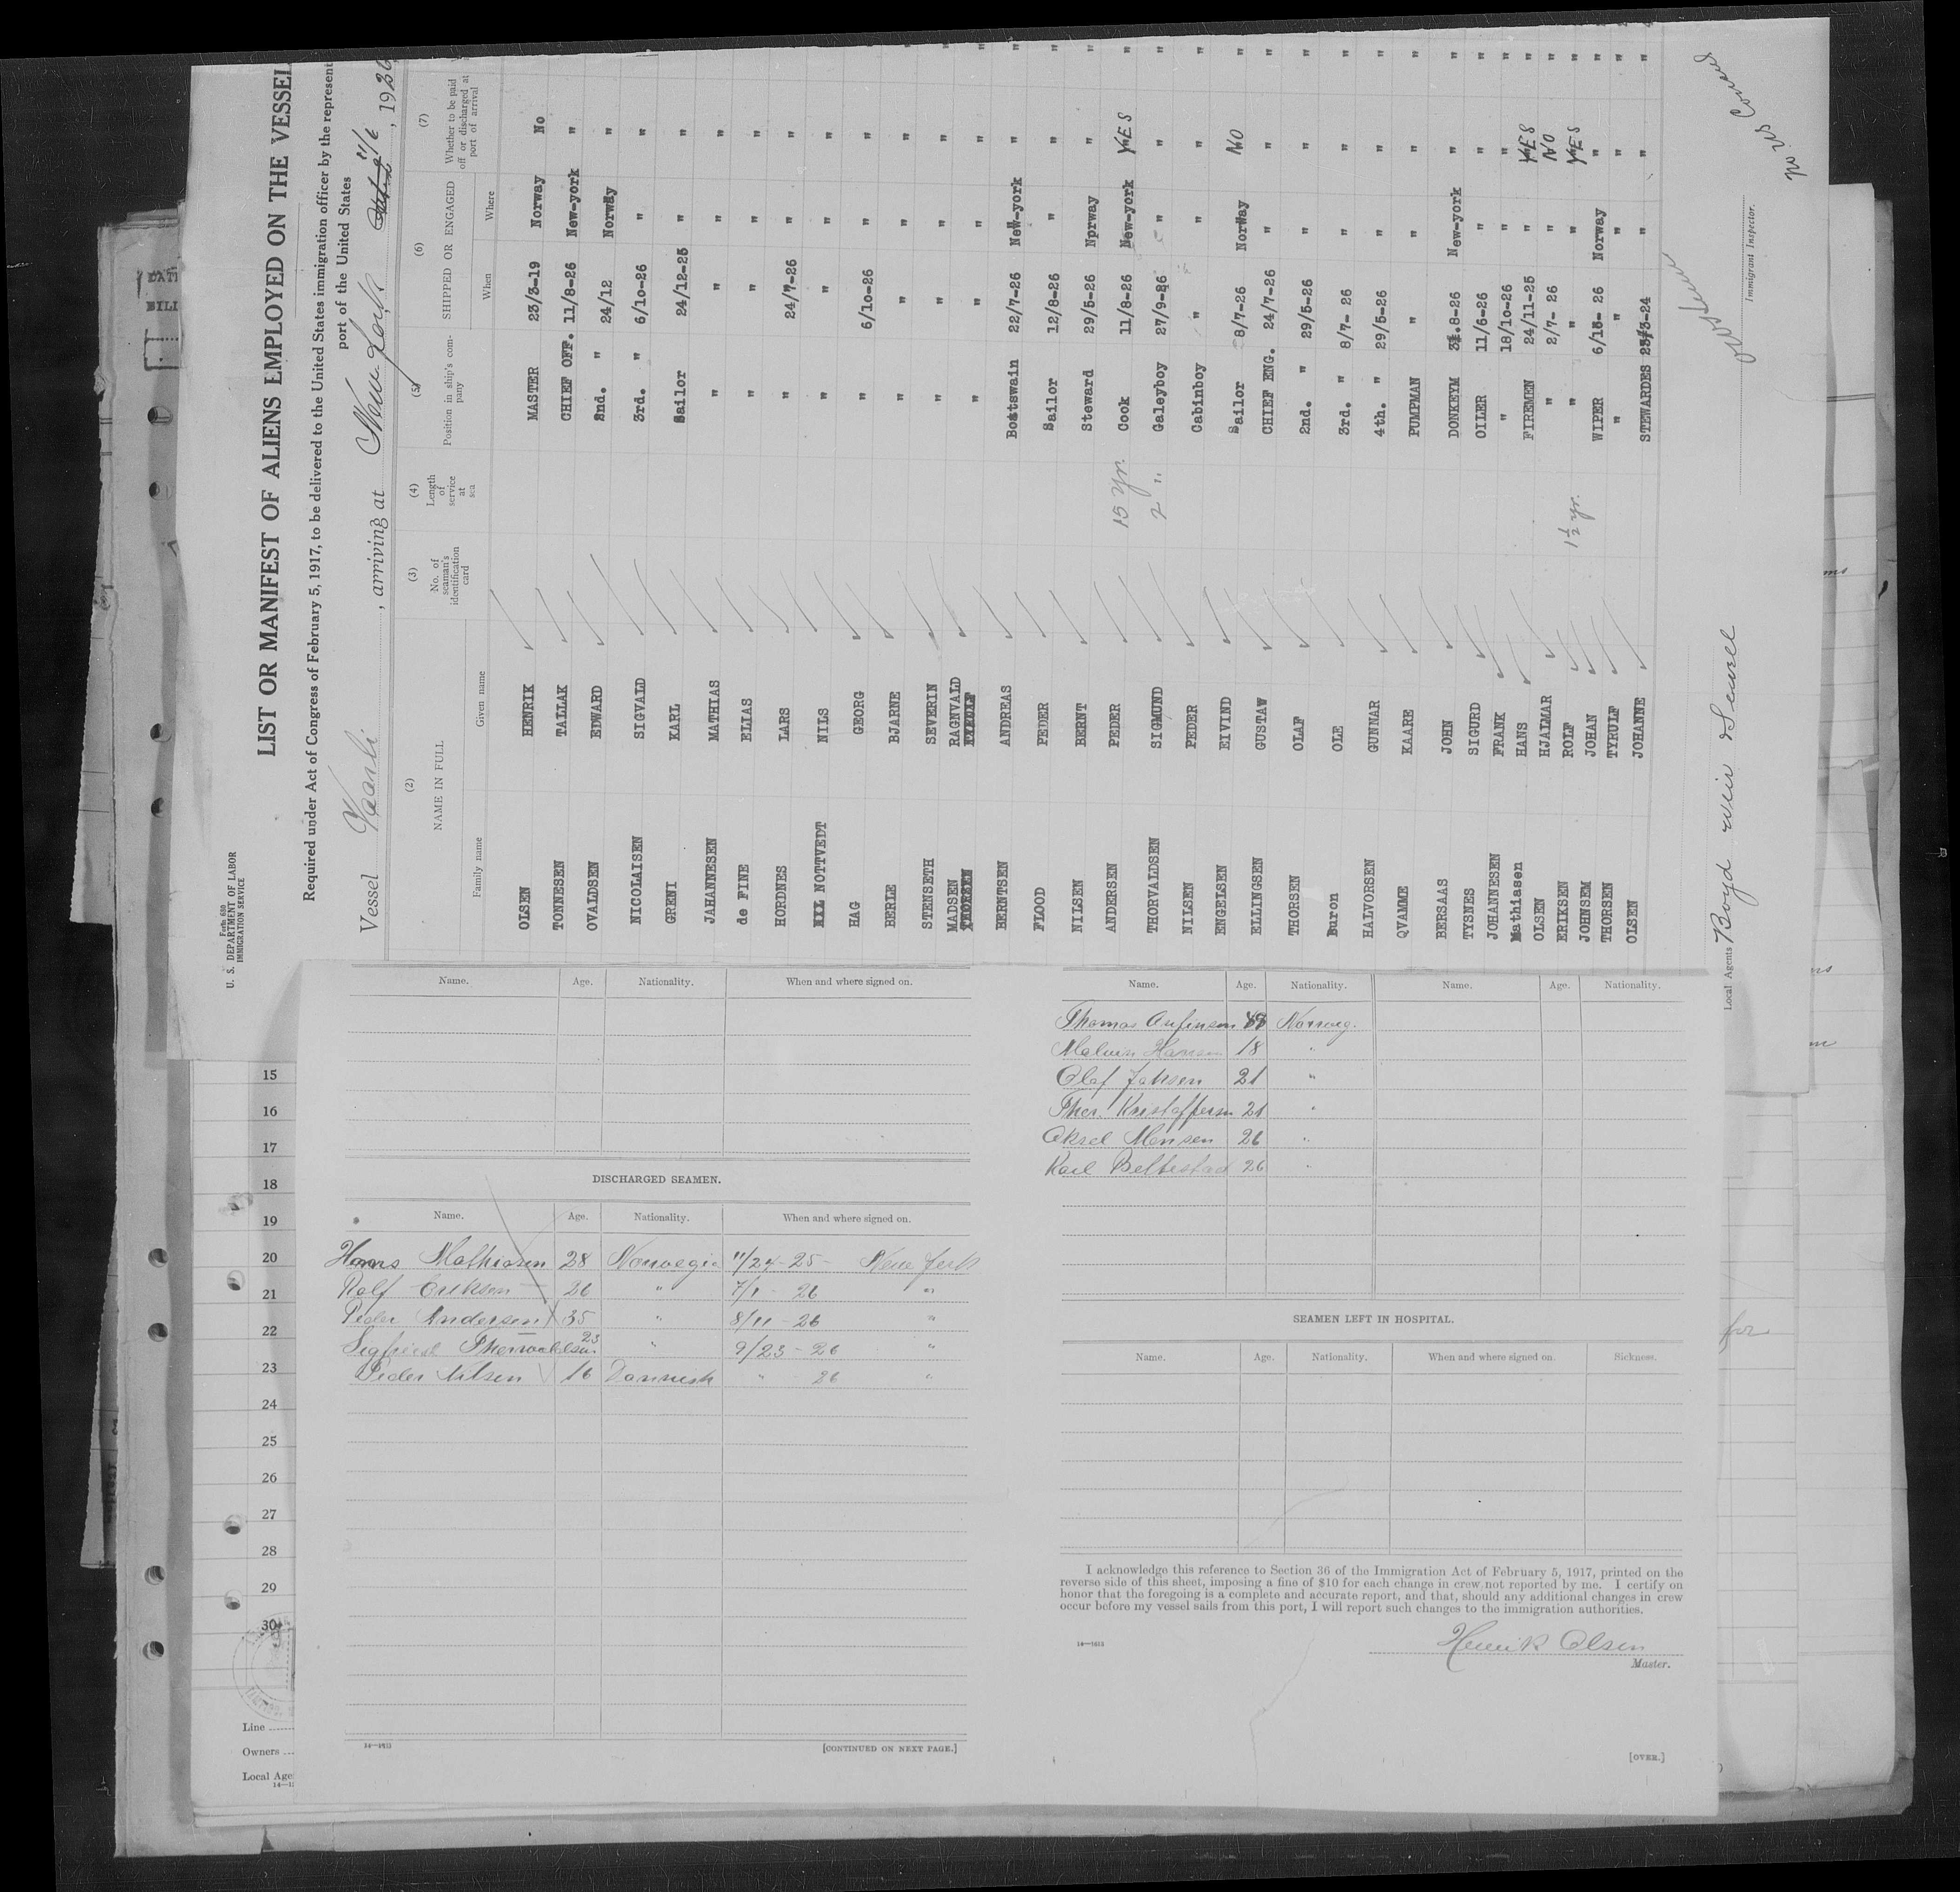 U. S. DEPARTMENT OF LABOR
IMMIGRATION SERVICE
LIST OR MANIFEST OF ALIENS EMPLOYED ON THE VESSEL
Required under Act of Congress of February 5, 1917, to be delivered to the United States immigration officer by the represent
port of the United States
Vessel Vaarli, arriving at New York 11/6, 1926
(2) (3) (4) (5) (6) (7)
NAME IN FULL No. of seaman's identification card Length of service at sea Position in ship's company SHIPPED OR ENGAGED Whether to be paid off or discharged at port of arrival
Family name Given name When Where
OLSEN HENRIK MASTER 23/3-19 Norway No
TONNESEN TALLAK CHIEF OFF. 11/8-26 New-york "
OVALDSEN EDWARD 2nd. " 24/12 Norway "
NICOLAISEN SIGVALD 3rd. " 6/10-26 " "
GRENI KARL Sailor 24/12-25 " "
JAHANNESEN MATHIAS " " " "
de FINE ELIAS " " " "
HORDNES LARS " 24/7-26 " "
NOTTVEDT NILS " " " "
HAG GEORG " 6/10-26 " "
BERLE BJARNE " " " "
STENSETH SEVERIN " " " "
MADSEN RAGNVALD " " " "
BERNTSEN ANDREAS Boatswain 22/7-26 New-york "
FLOOD PEDER Sailor 12/8-26 " "
NILSEN BERNT Steward 29/5-26 Nprway "
ANDERSEN PEDER 15 yr. Cook 11/8-26 New-york YES
THORVALDSEN SIGMUND 2 " Galeyboy 27/9-26 " "
NILSEN PEDER Cabinboy " " "
ENGELSEN EIVIND Sailor 8/7-26 Norway NO
ELLINGSEN GUSTAW CHIEF ENG. 24/7-26 " "
THORSEN OLAF 2nd. " 29/5-26 " "
Buron OLE 3rd. " 8/7- 26 " "
HALVORSEN GUNNAR 4th. " 29/5-26 " "
QVAMME KAARE PUMPMAN " " "
BERSAAS JOHN DONKEYM 31.8-26 New-york "
TYSNES SIGURD OILER 11/6-26 " "
JOHANNESEN FRANK " 18/10-26 " "
Mathiasen HANS FIREMEN 24/11-25 " YES
OLSEN HJALMAR " 2/7- 26 " NO
ERIKSEN ROLF 1½ yr. " " " YES
JOHNSEM JOHAN WIPER 6/10- 26 Norway "
THORSEN TYRULF " " " "
OLSEN JOHANNE STEWARDES 23/3-24 " "
Local Agents Boyd Weir & Sewell
Immigrant Inspector.
Name. Age. Nationality. When and where signed on.
DISCHARGED SEAMEN.
Name. Age. Nationality. When and where signed on.
Hans Mathiasen 28 Norwegia 11/24-25- New York
Rolf Eriksen 26 " 7/1 - 26 "
Peder Andersen 35 " 8/11-26 "
Sigfried Thorvaldsen 23 " 9/23-26 "
Peder Nilsen 16 Dannish " 26 "
14—1613
[CONTINUED ON NEXT PAGE.]
Name. Age. Nationality. Name. Age. Nationality.
Thomas Anfinsen Norweg.
Malvin Hansen 18 "
Olaf Johsen 21 "
Thor. Kristoffersen 21 "
Aksel Monsen 26 "
Karl Beltestad 26 "
SEAMEN LEFT IN HOSPITAL.
Name. Age. Nationality. When and where signed on. Sickness.
I acknowledge this reference to Section 36 of the Immigration Act of February 5, 1917, printed on the
reverse side of this sheet, imposing a fine of $10 for each change in crew not reported by me. I certify on
honor that the foregoing is a complete and accurate report, and that, should any additional changes in crew
occur before my vessel sails from this port, I will report such changes to the immigration authorities.
14—1613
Henrik Olsen
Master.
[OVER.]
15
16
17
18
19
20
21
22
23
24
25
26
27
28
29
30
Line
Owners
Local Age